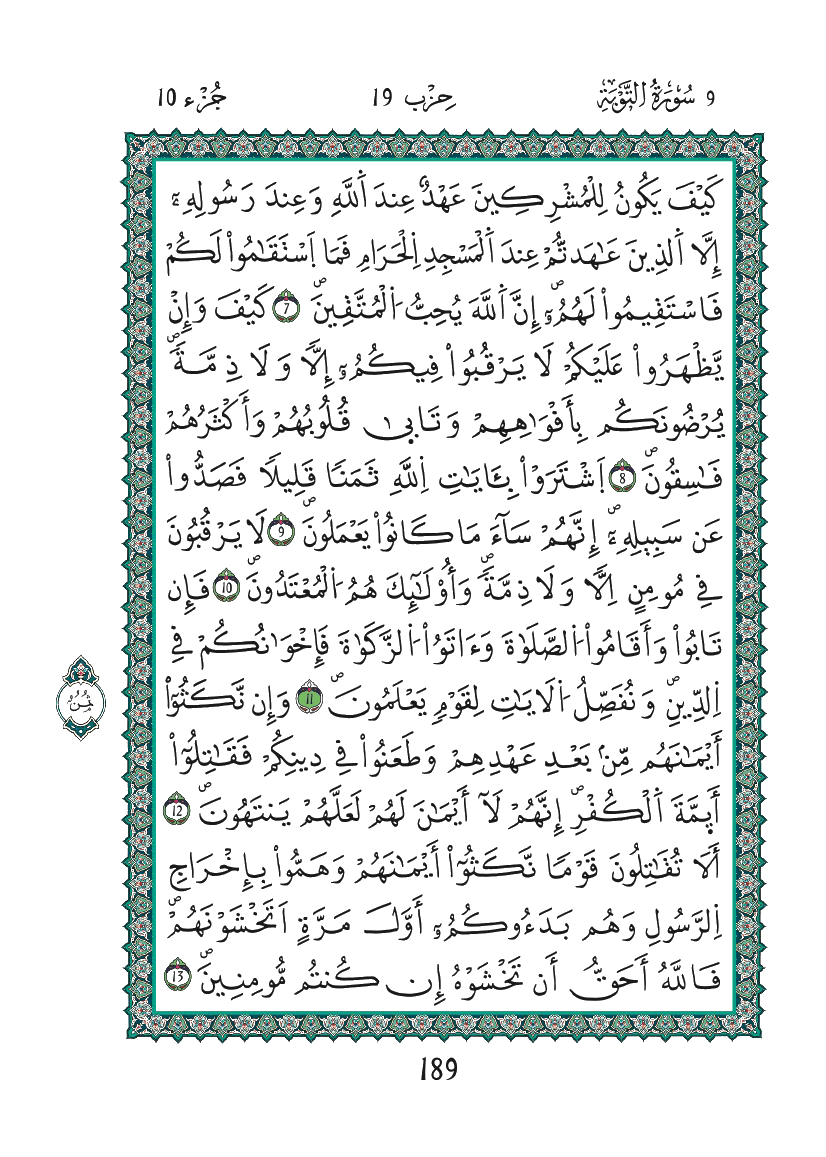 9 سُورَةُ التَّوْبَةِ
حِزْب 19
جُزْء 10
كَيْفَ يَكُونُ لِلْمُشْرِكِينَ عَهْدٌ عِندَ اَللَّهِ وَعِندَ رَسُولِهِۦٓ
إِلَّا اَلذِينَ عَٰهَدتُّمْ عِندَ اَلْمَسْجِدِ اِلْحَرَامِ فَمَا اَسْتَقَٰمُواْ لَكُمْ
فَاسْتَقِيمُواْ لَهُمُۥٓ إِنَّ اَللَّهَ يُحِبُّ اُلْمُتَّقِينَۖ 7 كَيْفَ وَإِنْ
يَّظْهَرُواْ عَلَيْكُمْ لَا يَرْقُبُواْ فِيكُمُۥٓ إِلّاٗ وَلَا ذِمَّةٗۖ
يُرْضُونَكُم بِأَفْوَٰهِهِمْ وَتَابىٰ قُلُوبُهُمْ وَأَكْثَرُهُمْ
فَٰسِقُونَۖ 8 اَشْتَرَوْاْ بِـَٔايَٰتِ اِللَّهِ ثَمَنًا قَلِيلًا فَصَدُّواْ
عَن سَبِيلِهِۦٓۖ إِنَّهُمْ سَآءَ مَا كَانُواْ يَعْمَلُونَۖ 9 لَا يَرْقُبُونَ
فِي مُومِنٍ اِلّاٗ وَلَا ذِمَّةٗۖ وَأُوْلَٰٓئِكَ هُمُ اُلْمُعْتَدُونَۖ 10 فَإِن
تَابُواْ وَأَقَامُواْ اُلصَّلَوٰةَ وَءَاتَوُاْ اُلزَّكَوٰةَ فَإِخْوَٰنُكُمْ فِي
اِلدِّينِۖ وَنُفَصِّلُ اُلَايَٰتِ لِقَوْمٖ يَعْلَمُونَۖ 11 وَإِن نَّكَثُوٓاْ
أَيْمَٰنَهُم مِّنۢ بَعْدِ عَهْدِهِمْ وَطَعَنُواْ فِي دِينِكُمْ فَقَٰتِلُوٓاْ
أَيِمَّةَ اَلْكُفْرِۖ إِنَّهُمْ لَآ أَيْمَٰنَ لَهُمْ لَعَلَّهُمْ يَنتَهُونَۖ 12
أَلَا تُقَٰتِلُونَ قَوْمًا نَّكَثُوٓاْ أَيْمَٰنَهُمْ وَهَمُّواْ بِإِخْرَاجِ
اِلرَّسُولِ وَهُم بَدَءُوكُمُۥٓ أَوَّلَ مَرَّةٍ اَتَخْشَوْنَهُمْۖ
فَاللَّهُ أَحَقُّ أَن تَخْشَوْهُ إِن كُنتُم مُّومِنِينَۖ 13
ثُمُن
189